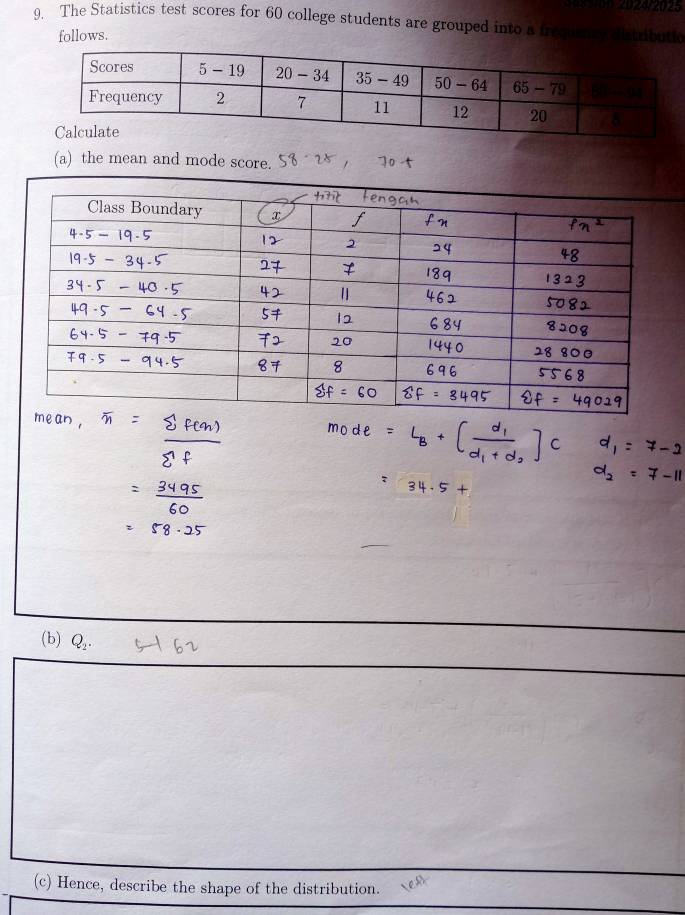 Session 2024/2025
9. The Statistics test scores for 60 college students are grouped into a frequency distribution
follows.
Scores 5 – 19 20 – 34 35 – 49 50 – 64 65 – 79 80 – 94
Frequency 2 7 11 12 20 8
Calculate
(a) the mean and mode score. 58.25, 70.5
titik tengah
Class Boundary x f fx fx²
4.5 – 19.5 12 2 24 48
19.5 – 34.5 27 7 189 1323
34.5 – 40.5 42 11 462 5082
49.5 – 64.5 57 12 684 8208
64.5 – 79.5 72 20 1440 28 800
79.5 – 94.5 87 8 696 5568
Σf = 60 Σf = 3495 Σf = 49029
mean, x̄ = Σ f(x) / Σ f
mode = L_B + (d₁ / d₁ + d₂) C
d₁ = 7 – 2
d₂ = 7 – 11
= 3495 / 60
= 34.5 +
= 58.25
(b) Q₂. 62
(c) Hence, describe the shape of the distribution. left